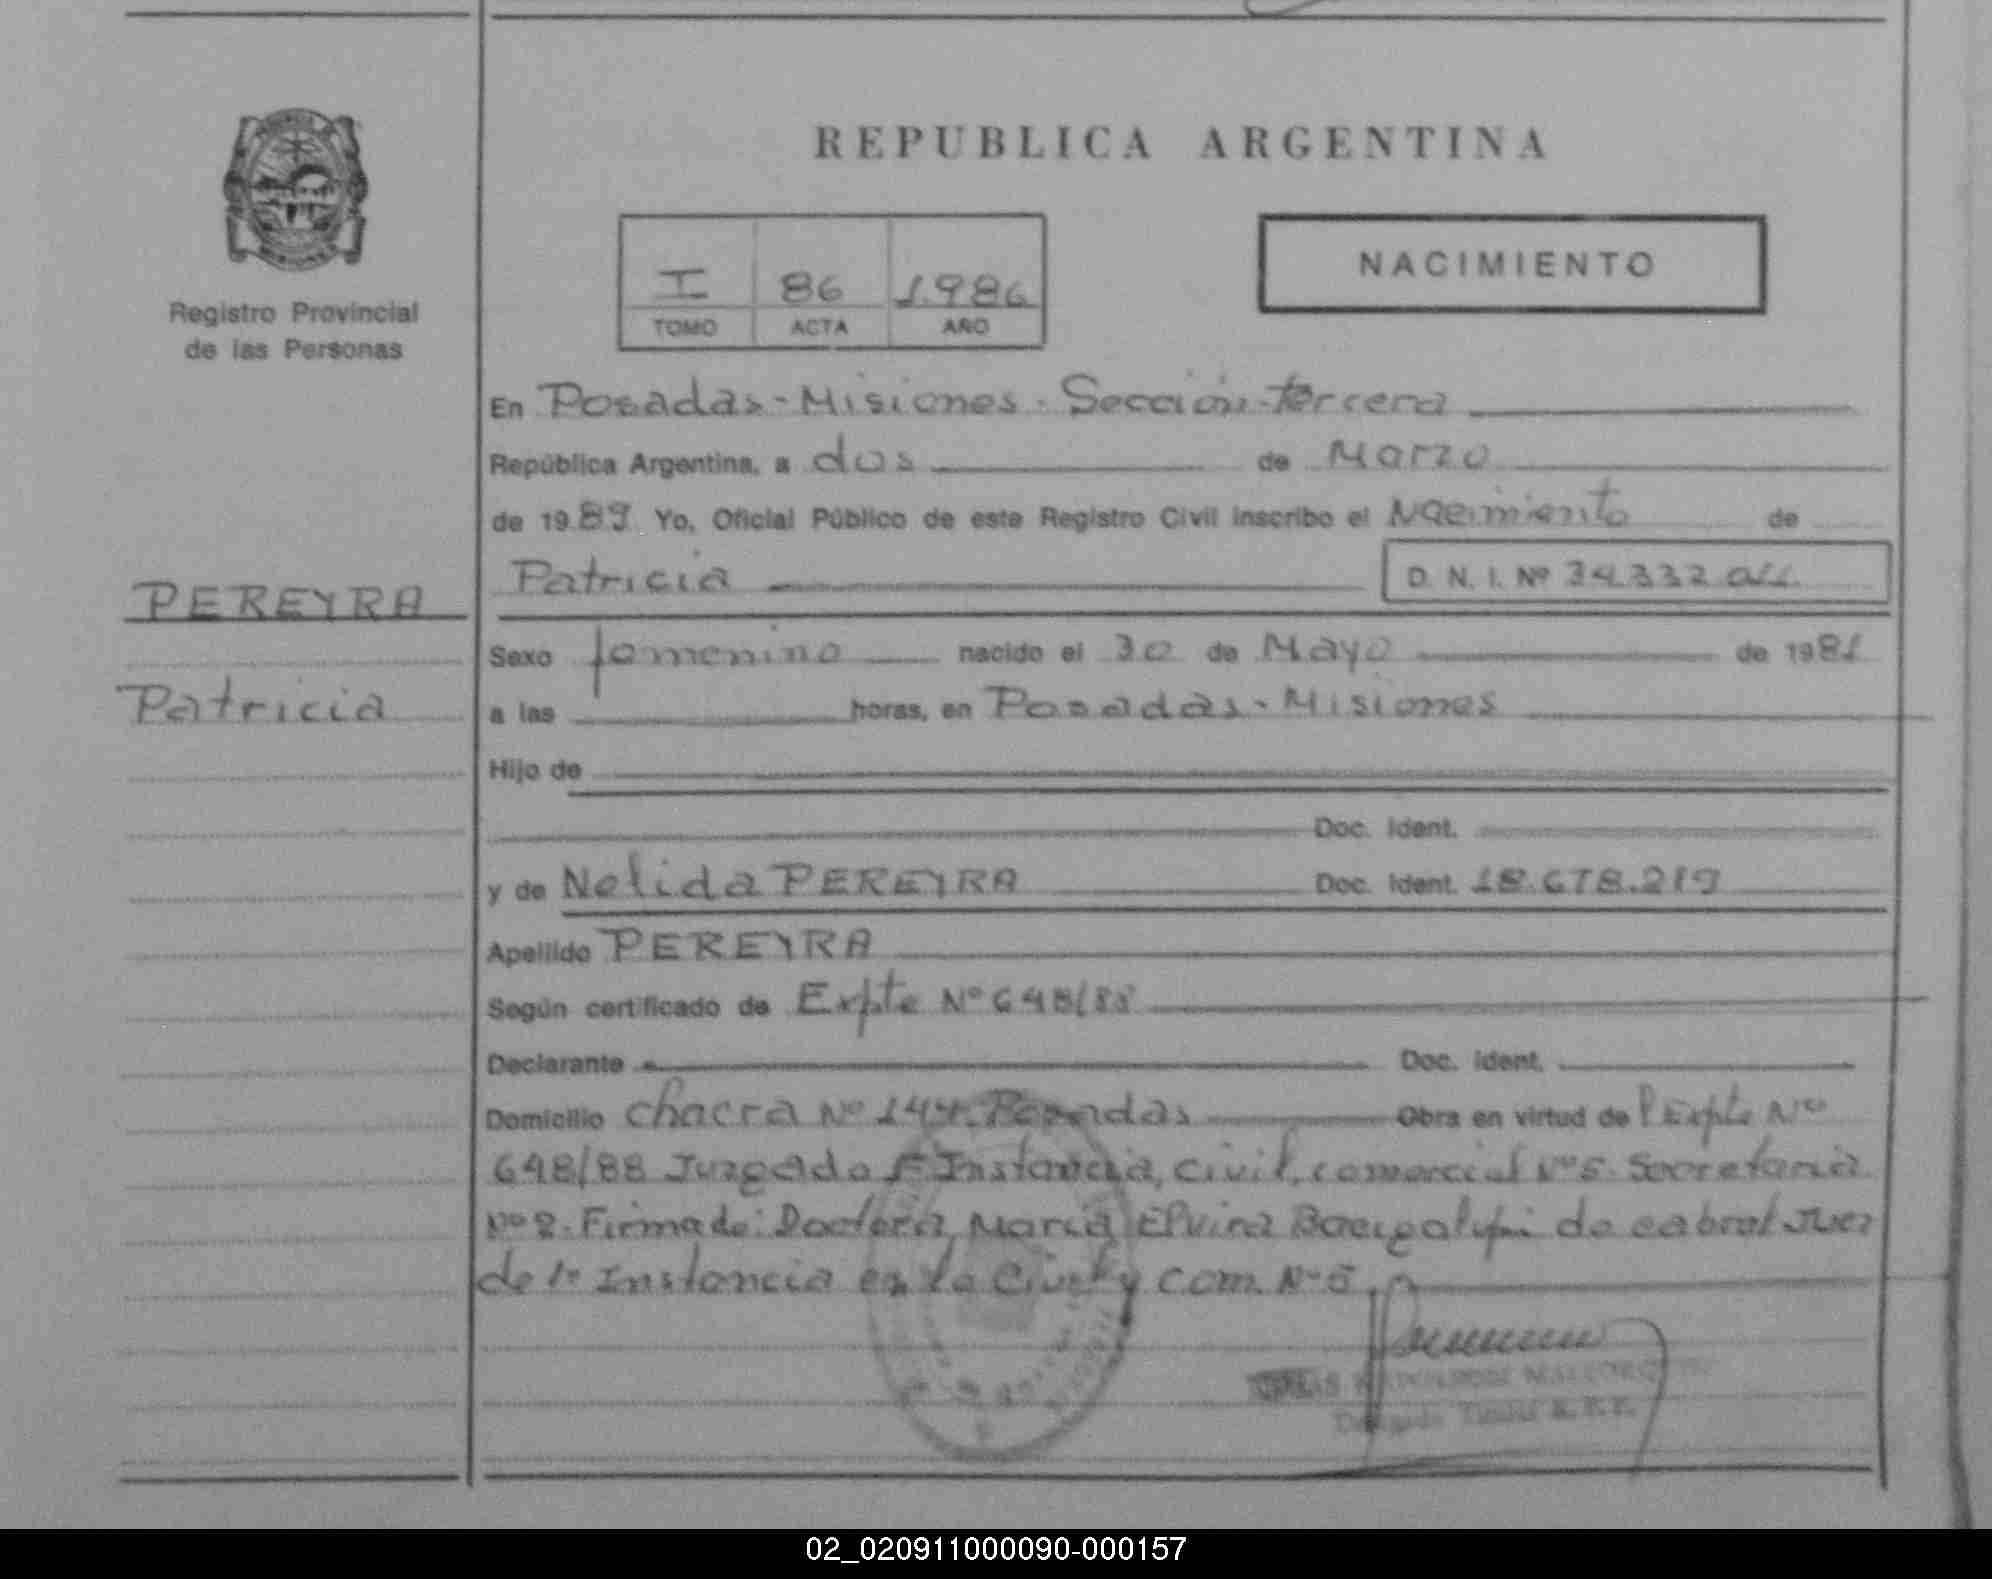 REPUBLICA ARGENTINA
NACIMIENTO
I 86 1.986
TOMO ACTA AÑO
Registro Provincial
de las Personas
En Posadas - Misiones - Sección tercera
República Argentina, a dos de Marzo
de 19 89 Yo, Oficial Público de este Registro Civil inscribo el Nacimiento de
Patricia D. N. I. Nº
PEREYRA
Patricia
Sexo femenino nacido el 30 de Mayo de 1981
a las horas, en Posadas - Misiones
Hijo de
Doc. Ident.
y de Nelida PEREYRA Doc. Ident. 18.678.219
Apellido PEREYRA
Según certificado de Expte Nº 648/88
Declarante Doc. Ident.
Domicilio chacra Nº Posadas Obra en virtud de Expte Nº
648/88 Juzgado Instancia, Civil, comercial Nº 5. Secretaria
Nº 2. Firmado: Doctora Maria Elvira de Cabral Juez
de 1º Instancia en lo Civil y Com. Nº 5
02_020911000090-000157